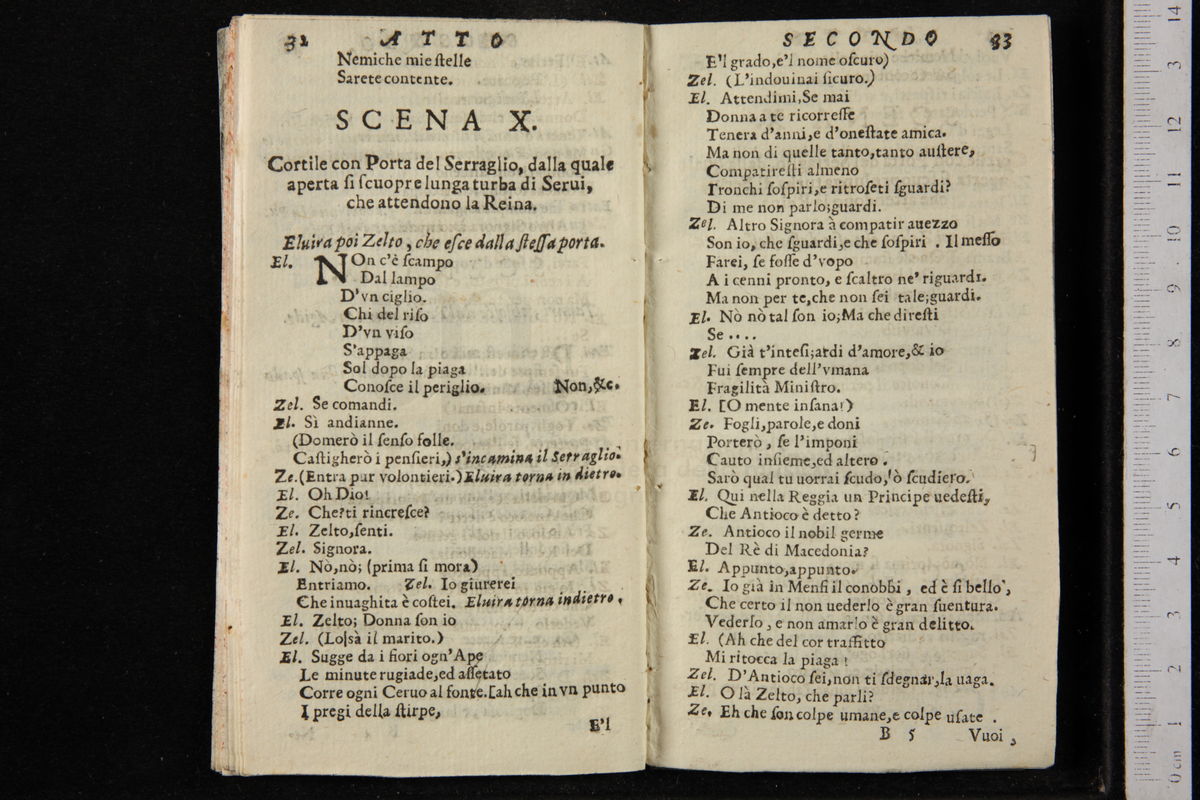 32 ATTO
Nemiche mie ſtelle
Sarete contente.
SCENA X.
Cortile con Porta del Serraglio, dalla quale
aperta ſi ſcuopre lunga turba di Serui,
che attendono la Reina.
Eluira poi Zelto, che eſce dalla ſteſſa porta.
El. NOn c'è ſcampo
Dal lampo
D'vn ciglio.
Chi del riſo
D'vn viſo
S'appaga
Sol dopo la piaga
Conoſce il periglio. Non,&c.
Zel. Se comandi.
El. Sì andianne.
(Domerò il ſenſo folle.
Caſtigherò i penſieri,) s'incamina il Serraglio.
Ze.(Entra pur volontieri.) Eluira torna in dietro.
El. Oh Dio!
Ze. Che?ti rincreſce?
El. Zelto,ſenti.
Zel. Signora.
El. Nò,nò; (prima ſi mora)
Entriamo. Zel. Io giurerei
Che inuaghita è coſtei. Eluira torna indietro.
El. Zelto; Donna ſon io
Zel. (Lo sà il marito.)
El. Sugge da i fiori ogn'Ape
Le minute rugiade,ed aſſetato
Corre ogni Ceruo al fonte.[ah che in vn punto
I pregi della ſtirpe,
E'l
SECONDO 83
E'l grado,e'l nome oſcuro)
Zel. (L'indouinai ſicuro.)
El. Attendimi,Se mai
Donna a te ricorreſſe
Tenera d'anni,e d'oneſtate amica.
Ma non di quelle tanto,tanto auſtere,
Compatireſti almeno
Tronchi ſoſpiri,e ritroſeti ſguardi?
Di me non parlo;guardi.
Zel. Altro Signora à compatir auezzo
Son io, che ſguardi,e che ſoſpiri . Il meſſo
Farei, ſe foſſe d'vopo
A i cenni pronto, e ſcaltro ne' riguardi.
Ma non per te,che non ſei tale;guardi.
El. Nò nò tal ſon io;Ma che direſti
Se ....
Zel. Già t'inteſi;ardi d'amore,& io
Fui ſempre dell'vmana
Fragilità Miniſtro.
El. [O mente inſana!)
Ze. Fogli,parole,e doni
Porterò , ſe l'imponi
Cauto inſieme,ed altero .
Sarò qual tu uorrai ſcudo,ò ſcudiero.
El. Qui nella Reggia un Principe uedeſti,
Che Antioco è detto?
Ze. Antioco il nobil germe
Del Rè di Macedonia?
El. Appunto,appunto.
Ze. Io già in Menfi il conobbi , ed è ſi bello,
Che certo il non uederlo è gran ſuentura.
Vederlo, e non amarlo è gran delitto.
El. (Ah che del cor traffitto
Mi ritocca la piaga!
Zel. D'Antioco ſei,non ti ſdegnar,la uaga.
El. O là Zelto, che parli?
Ze. Eh che ſon colpe umane,e colpe uſate .
B 5 Vuoi,